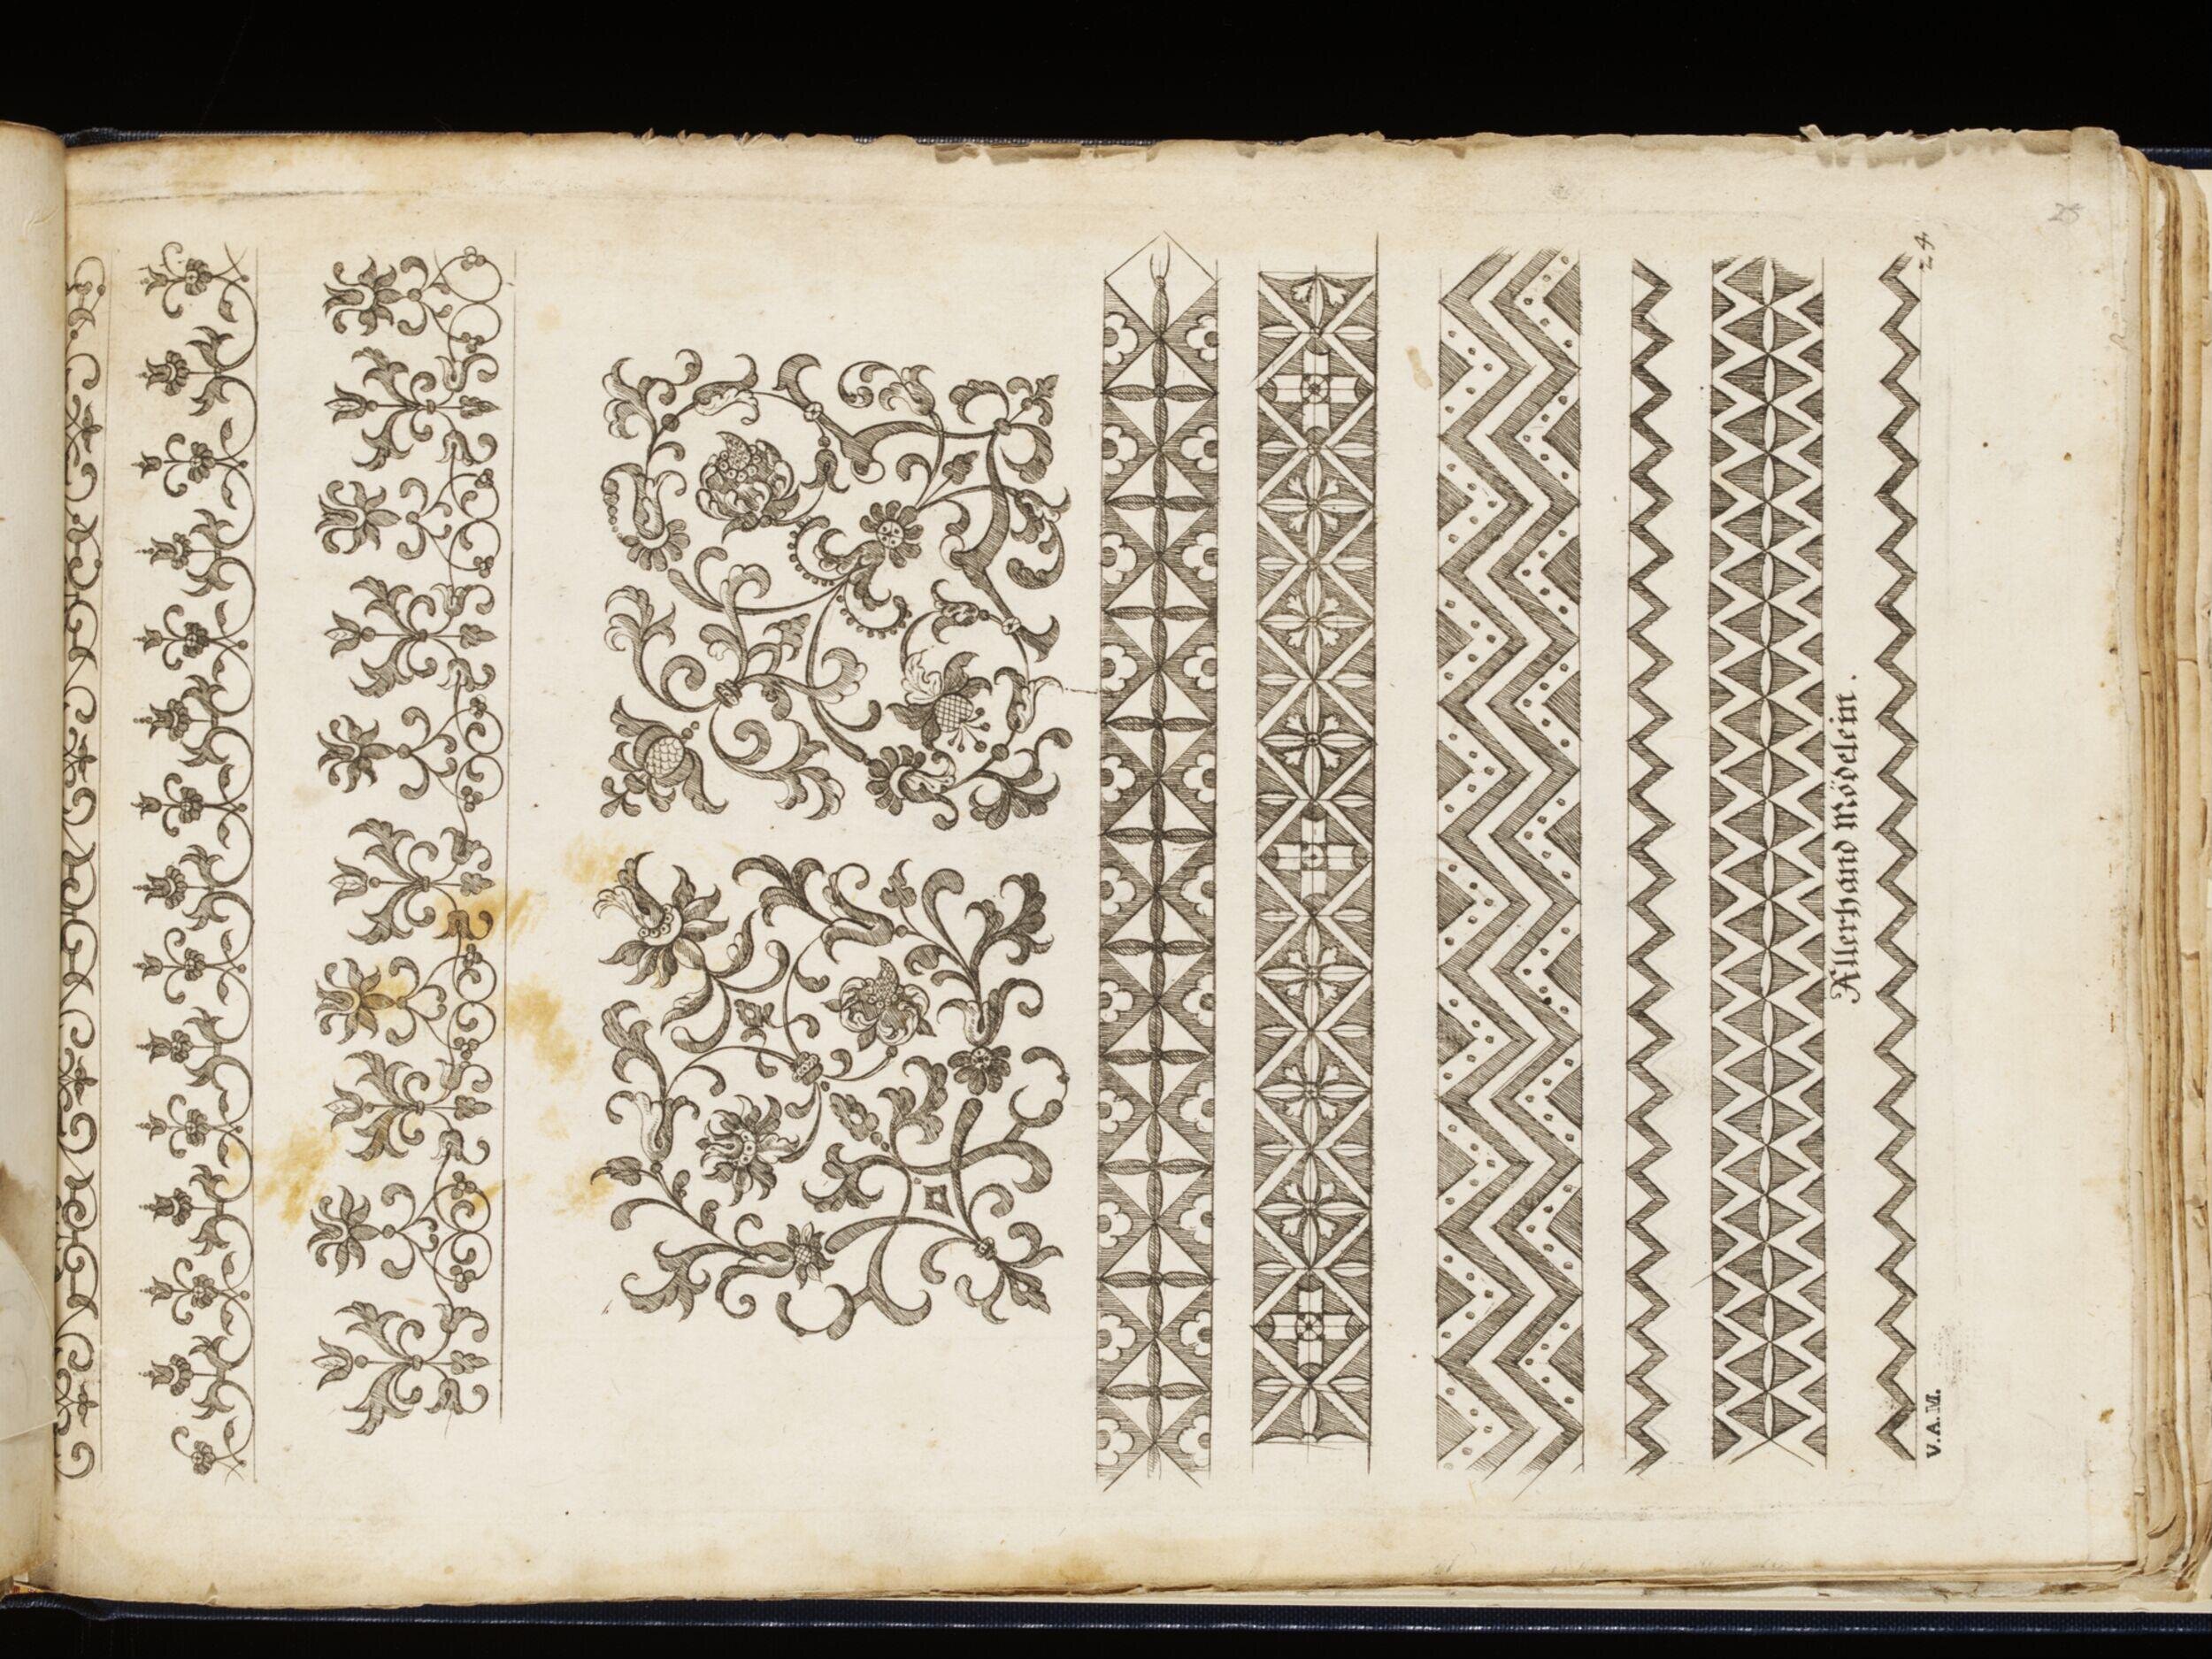 24
25
Allerhand Mödelein.
V.A.M.